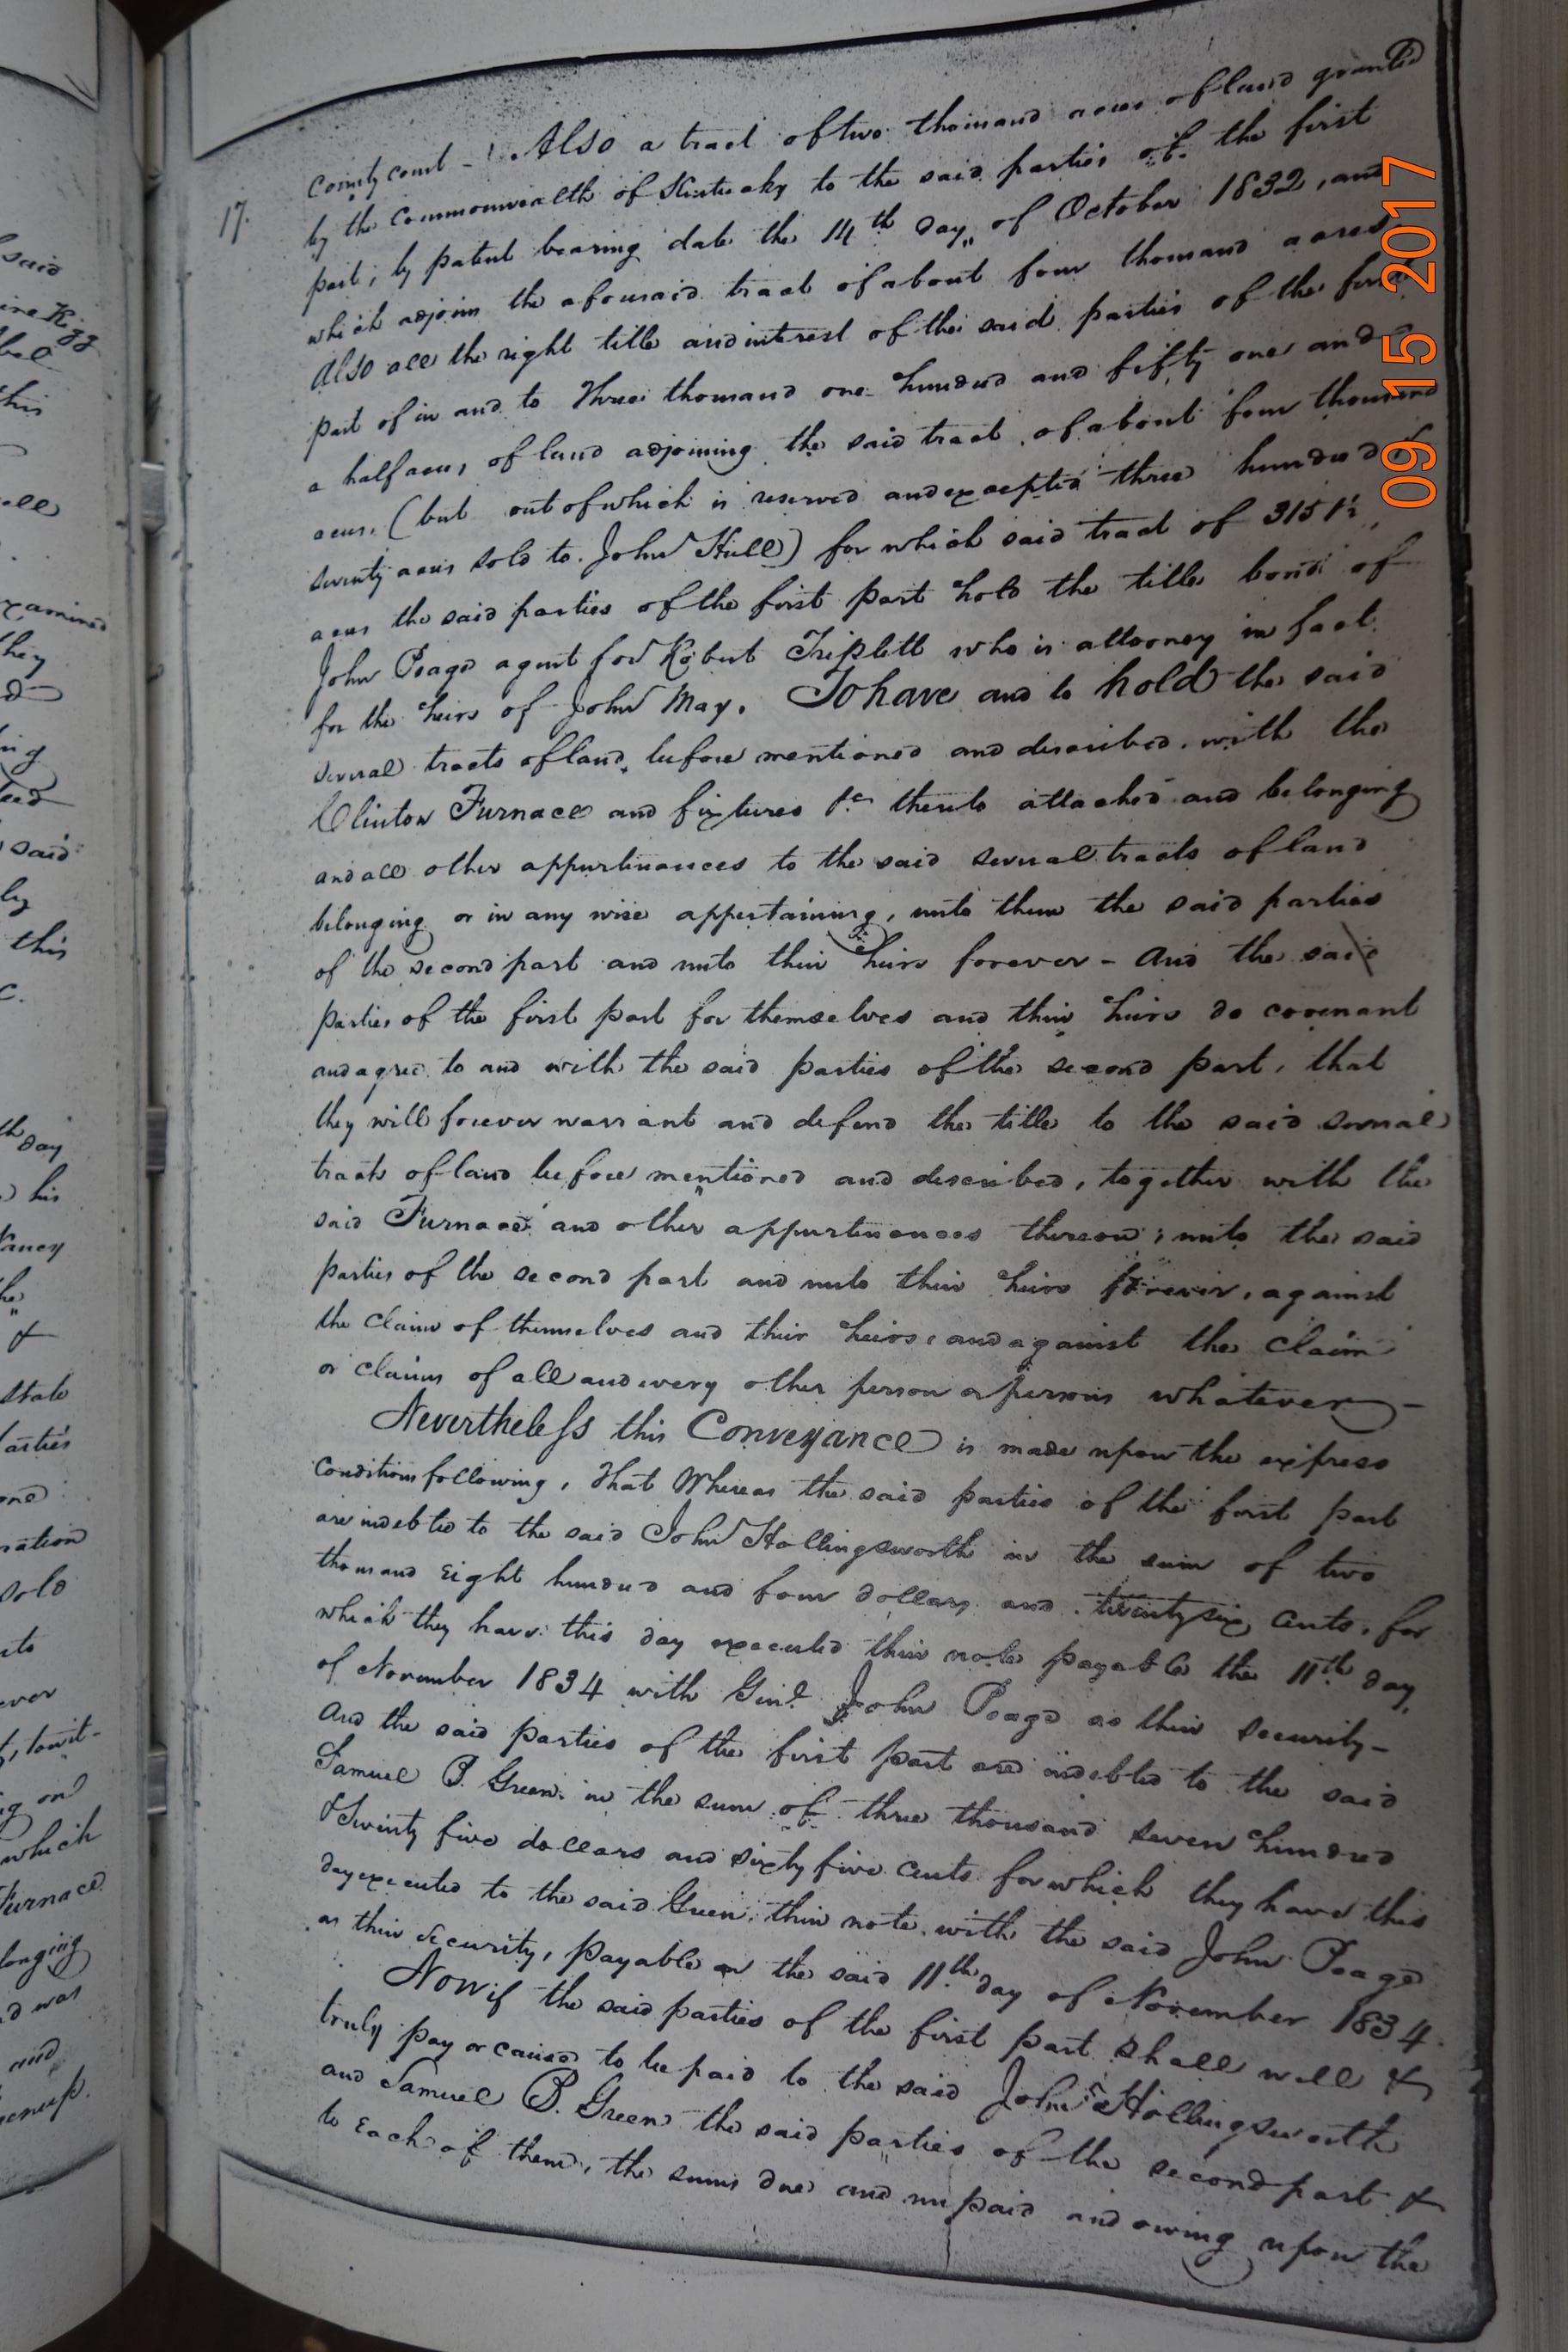 17.
County court - Also a tract of two thousand acres of land granted
by the Commonwealth of Kentucky to the said parties of the first
part, by patent bearing date the 14th day of October 1832, and
which adjoins the aforesaid tract of about four thousand acres
Also all the right title and interest of the said parties of the first
part of in and to Three thousand one hundred and fifty one and
a half acres of land adjoining the said tract of about four thousand
acres. (but out of which is reserved and excepted three hundred &
seventy acres sold to John Hull) for which said tract of 3151½
acres the said parties of the first part hold the title bond of
John Poage agent for Robert Triplett who is attorney in fact
for the heirs of John May. To have and to hold the said
several tracts of land, before mentioned and described, with the
Clinton Furnace and fixtures &c thereto attached and belonging
and all other appurtenances to the said several tracts of land
belonging or in any wise appertaining, unto them the said parties
of the second part and unto their heirs forever - And the said
parties of the first part for themselves and their heirs do covenant
and agree to and with the said parties of the second part, that
they will forever warrant and defend the title to the said several
tracts of land before mentioned and described, together with the
said Furnace and other appurtenances thereon; unto the said
parties of the second part and unto their heirs forever, against
the claim of themselves and their heirs, and against the claim
or claims of all and every other person or persons whatever -
Nevertheless this Conveyance is made upon the express
Conditions following, That Whereas the said parties of the first part
are indebted to the said John Hollingsworth in the sum of two
thousand Eight hundred and four dollars and twenty six cents, for
which they have this day executed their note payable the 11th day
of November 1834 with Genl. John Poage as their security -
And the said parties of the first part are indebted to the said
Samuel B. Green in the sum of three thousand seven hundred
& Twenty five dollars and sixty five cents for which they have this
day executed to the said Green their note with the said John Poage
as their security, payable on the said 11th day of November 1834.
Now if the said parties of the first part shall well &
truly pay or cause to be paid to the said John Hollingsworth
and Samuel B. Green the said parties of the second part &
to Each of them, the sums due and unpaid and owing upon the
09 15 2017
said
examined
they
said
this
day
his
state
parties
sold
which
Furnace
longing
d was
and